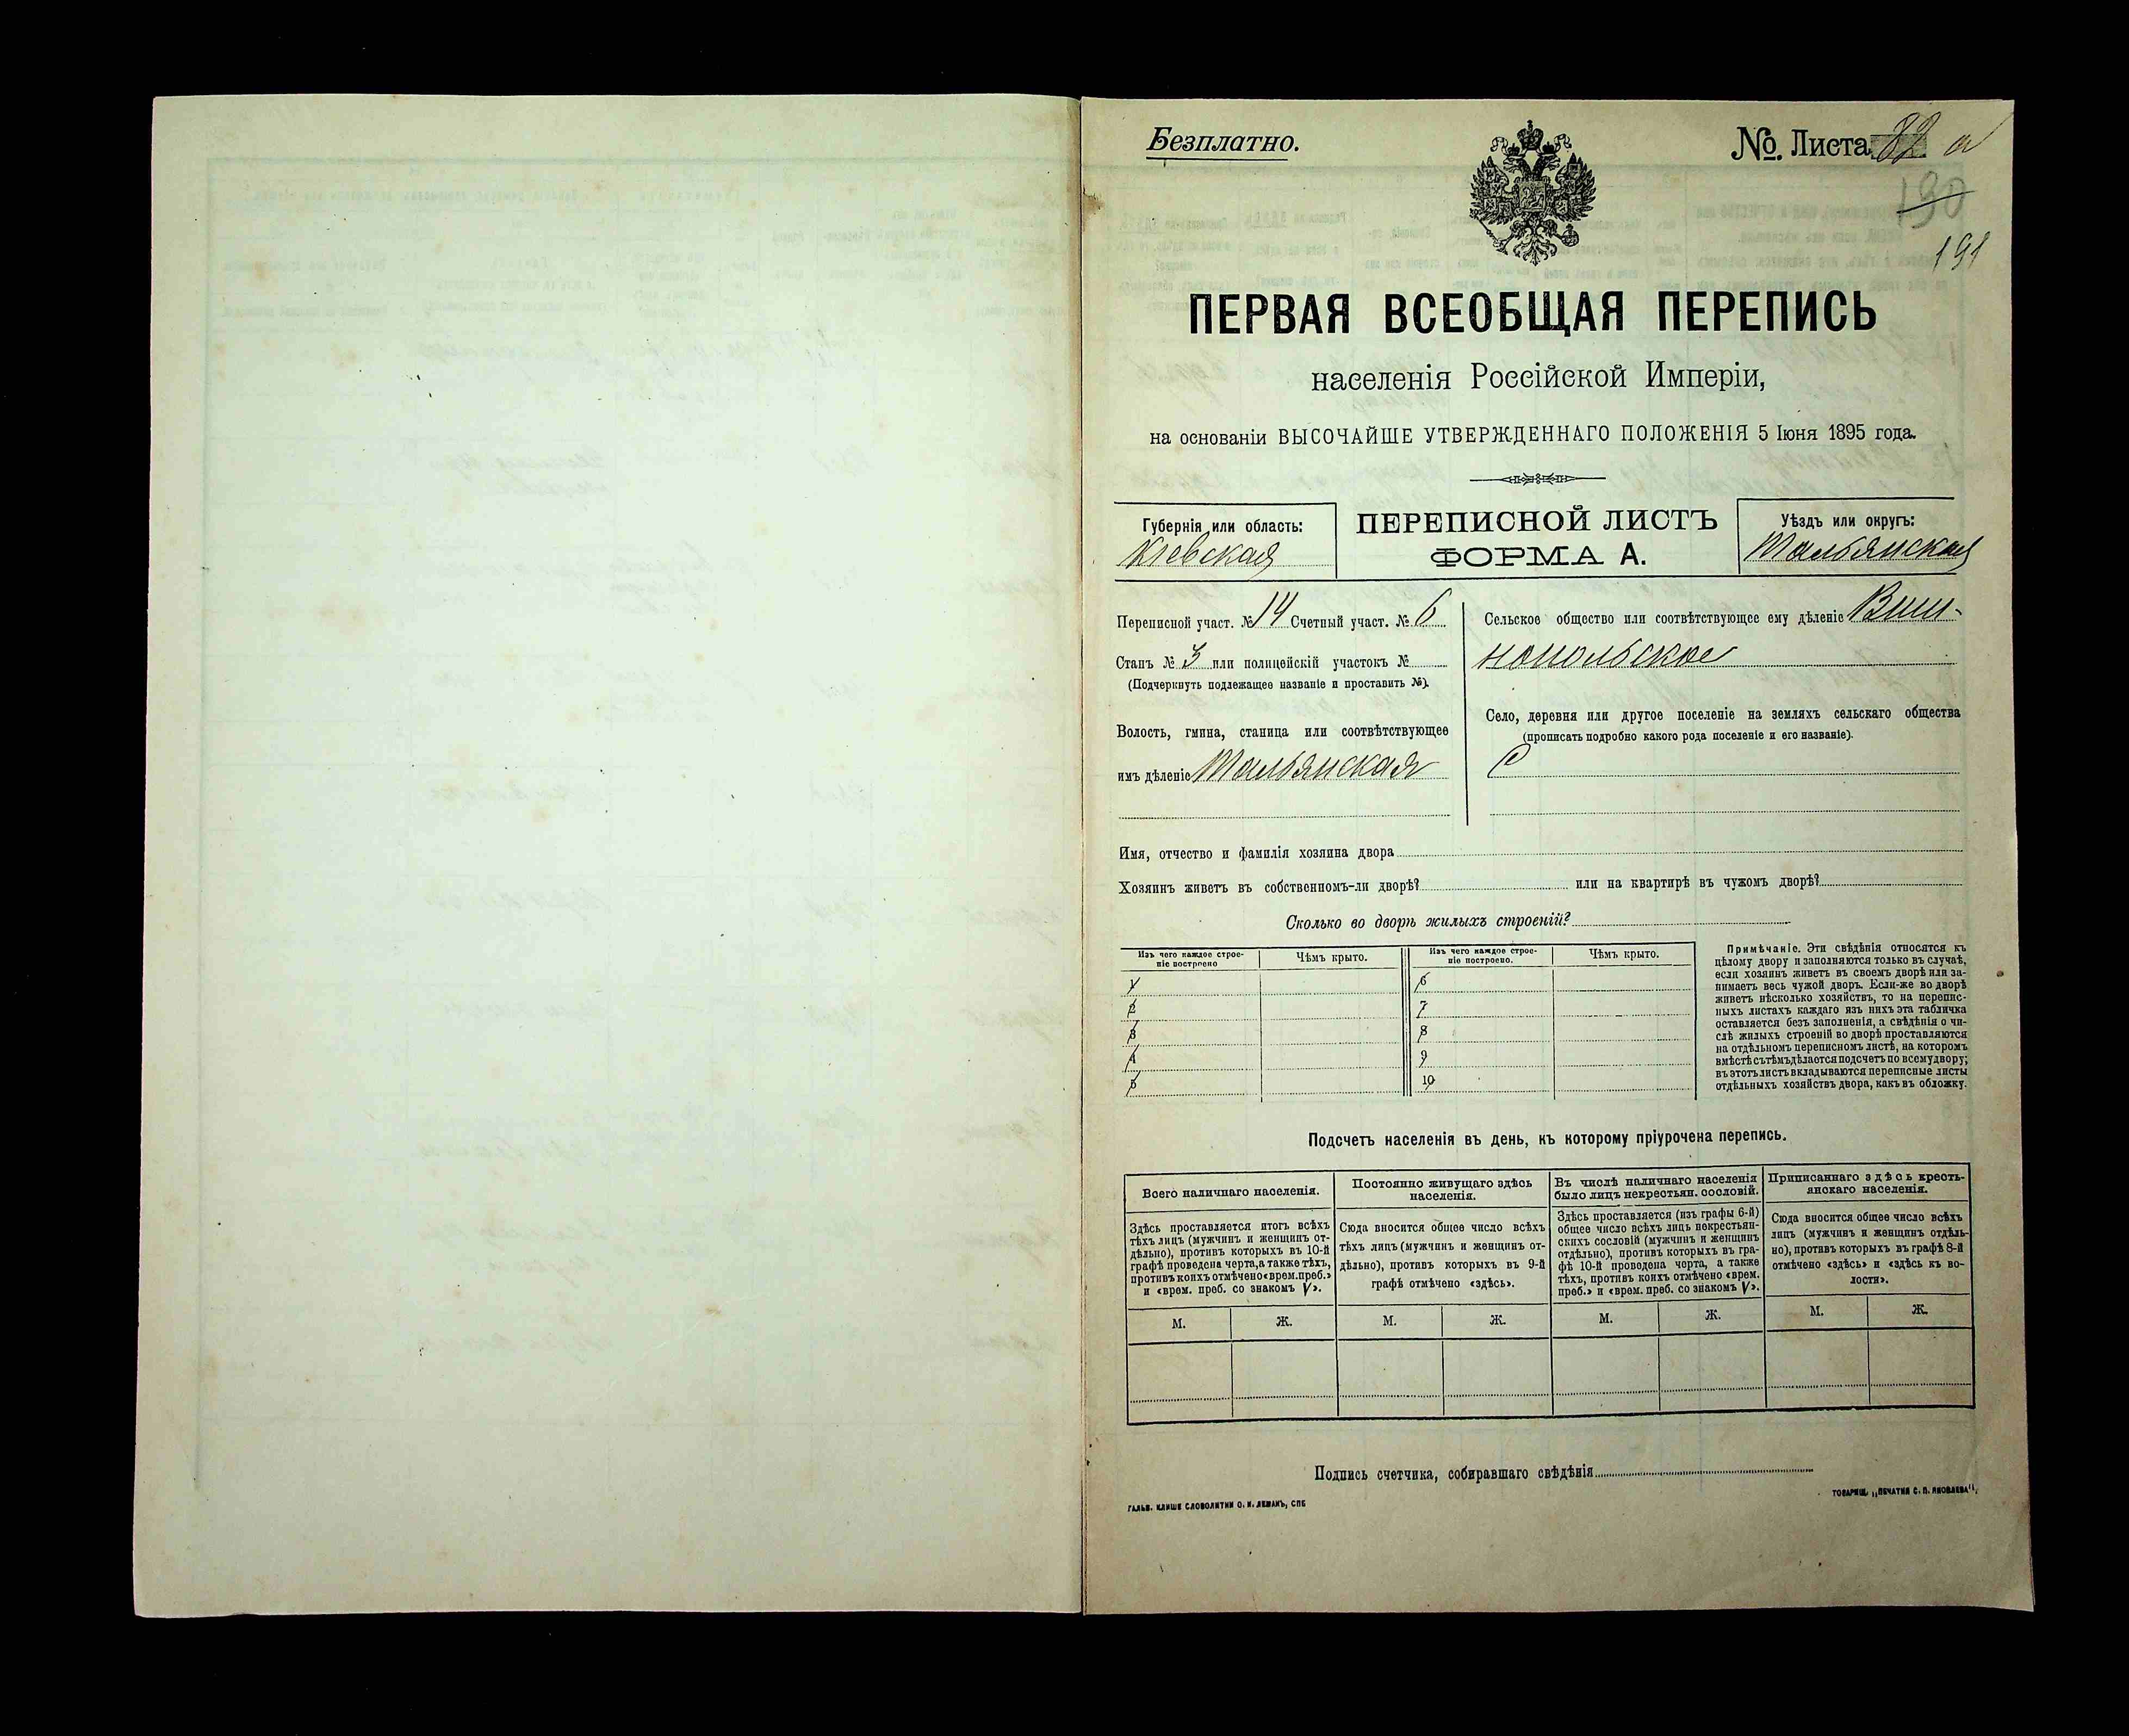 Безплатно.
№. Листа 82 а
190
191
ПЕРВАЯ ВСЕОБЩАЯ ПЕРЕПИСЬ
населенія Россійской Имперіи,
на основаніи ВЫСОЧАЙШЕ УТВЕРЖДЕННАГО ПОЛОЖЕНІЯ 5 Іюня 1895 года.
Губернія или область:
Кіевская
ПЕРЕПИСНОЙ ЛИСТЪ
ФОРМА А.
Уѣздъ или округъ:
Тальянская
Переписной участ. № 14 Счетный участ. № 6
Станъ № 3 или полицейскій участокъ №
(Подчеркнуть подлежащее названіе и проставить №).
Волость, гмина, станица или соотвѣтствующее
имъ дѣленіе Тальянская
Сельское общество или соотвѣтствующее ему дѣленіе Виш-
нопольское
Село, деревня или другое поселеніе на земляхъ сельскаго общества
(прописать подробно какого рода поселеніе и его названіе).
С
Имя, отчество и фамилія хозяина двора
Хозяинъ живетъ въ собственномъ-ли дворѣ? или на квартирѣ въ чужомъ дворѣ?
Сколько во дворѣ жилыхъ строеній?
Изъ чего каждое строе-
ніе построено
Чѣмъ крыто.
Изъ чего каждое строе-
ніе построено.
Чѣмъ крыто.
1 6
2 7
3 8
4 9
5 10
Примѣчаніе. Эти свѣдѣнія относятся къ
цѣлому двору и заполняются только въ случаѣ,
если хозяинъ живетъ въ своемъ дворѣ или за-
нимаетъ весь чужой дворъ. Если-же во дворѣ
живетъ нѣсколько хозяйствъ, то на перепис-
ныхъ листахъ каждаго изъ нихъ эта табличка
оставляется безъ заполненія, а свѣдѣнія о чи-
слѣ жилыхъ строеній во дворѣ проставляются
на отдѣльномъ переписномъ листѣ, на которомъ
вмѣстѣ съ тѣмъ дѣлается подсчетъ по всему двору;
въ этотъ листъ вкладываются переписные листы
отдѣльныхъ хозяйствъ двора, какъ въ обложку.
Подсчетъ населенія въ день, къ которому пріурочена перепись.
Всего наличнаго населенія.
Здѣсь проставляется итогъ всѣхъ
тѣхъ лицъ (мужчинъ и женщинъ от-
дѣльно), противъ которыхъ въ 10-й
графѣ проведена черта, а также тѣхъ,
противъ коихъ отмѣчено «врем. преб.»
и «врем. преб. со знакомъ V».
Постоянно живущаго здѣсь
населенія.
Сюда вносится общее число всѣхъ
тѣхъ лицъ (мужчинъ и женщинъ от-
дѣльно), противъ которыхъ въ 9-й
графѣ отмѣчено «здѣсь».
Въ числѣ наличнаго населенія
было лицъ некрестьян. сословій.
Здѣсь проставляется (изъ графы 6-й)
общее число всѣхъ лицъ некрестьян-
скихъ сословій (мужчинъ и женщинъ
отдѣльно), противъ которыхъ въ гра-
фѣ 10-й проведена черта, а также
тѣхъ, противъ коихъ отмѣчено «врем.
преб.» и «врем. преб. со знакомъ V».
Приписаннаго здѣсь кресть-
янскаго населенія.
Сюда вносится общее число всѣхъ
лицъ (мужчинъ и женщинъ отдѣль-
но), противъ которыхъ въ графѣ 8-й
отмѣчено «здѣсь» и «здѣсь къ во-
лости».
М. Ж. М. Ж. М. Ж. М. Ж.
Подпись счетчика, собиравшаго свѣдѣнія
ГАЛЬВ. КЛИШЕ СЛОВОЛИТНИ О. И. ЛЕМАНЪ, СПБ
ТОВАРИЩ. „ПЕЧАТНЯ С. П. ЯКОВЛЕВА“,